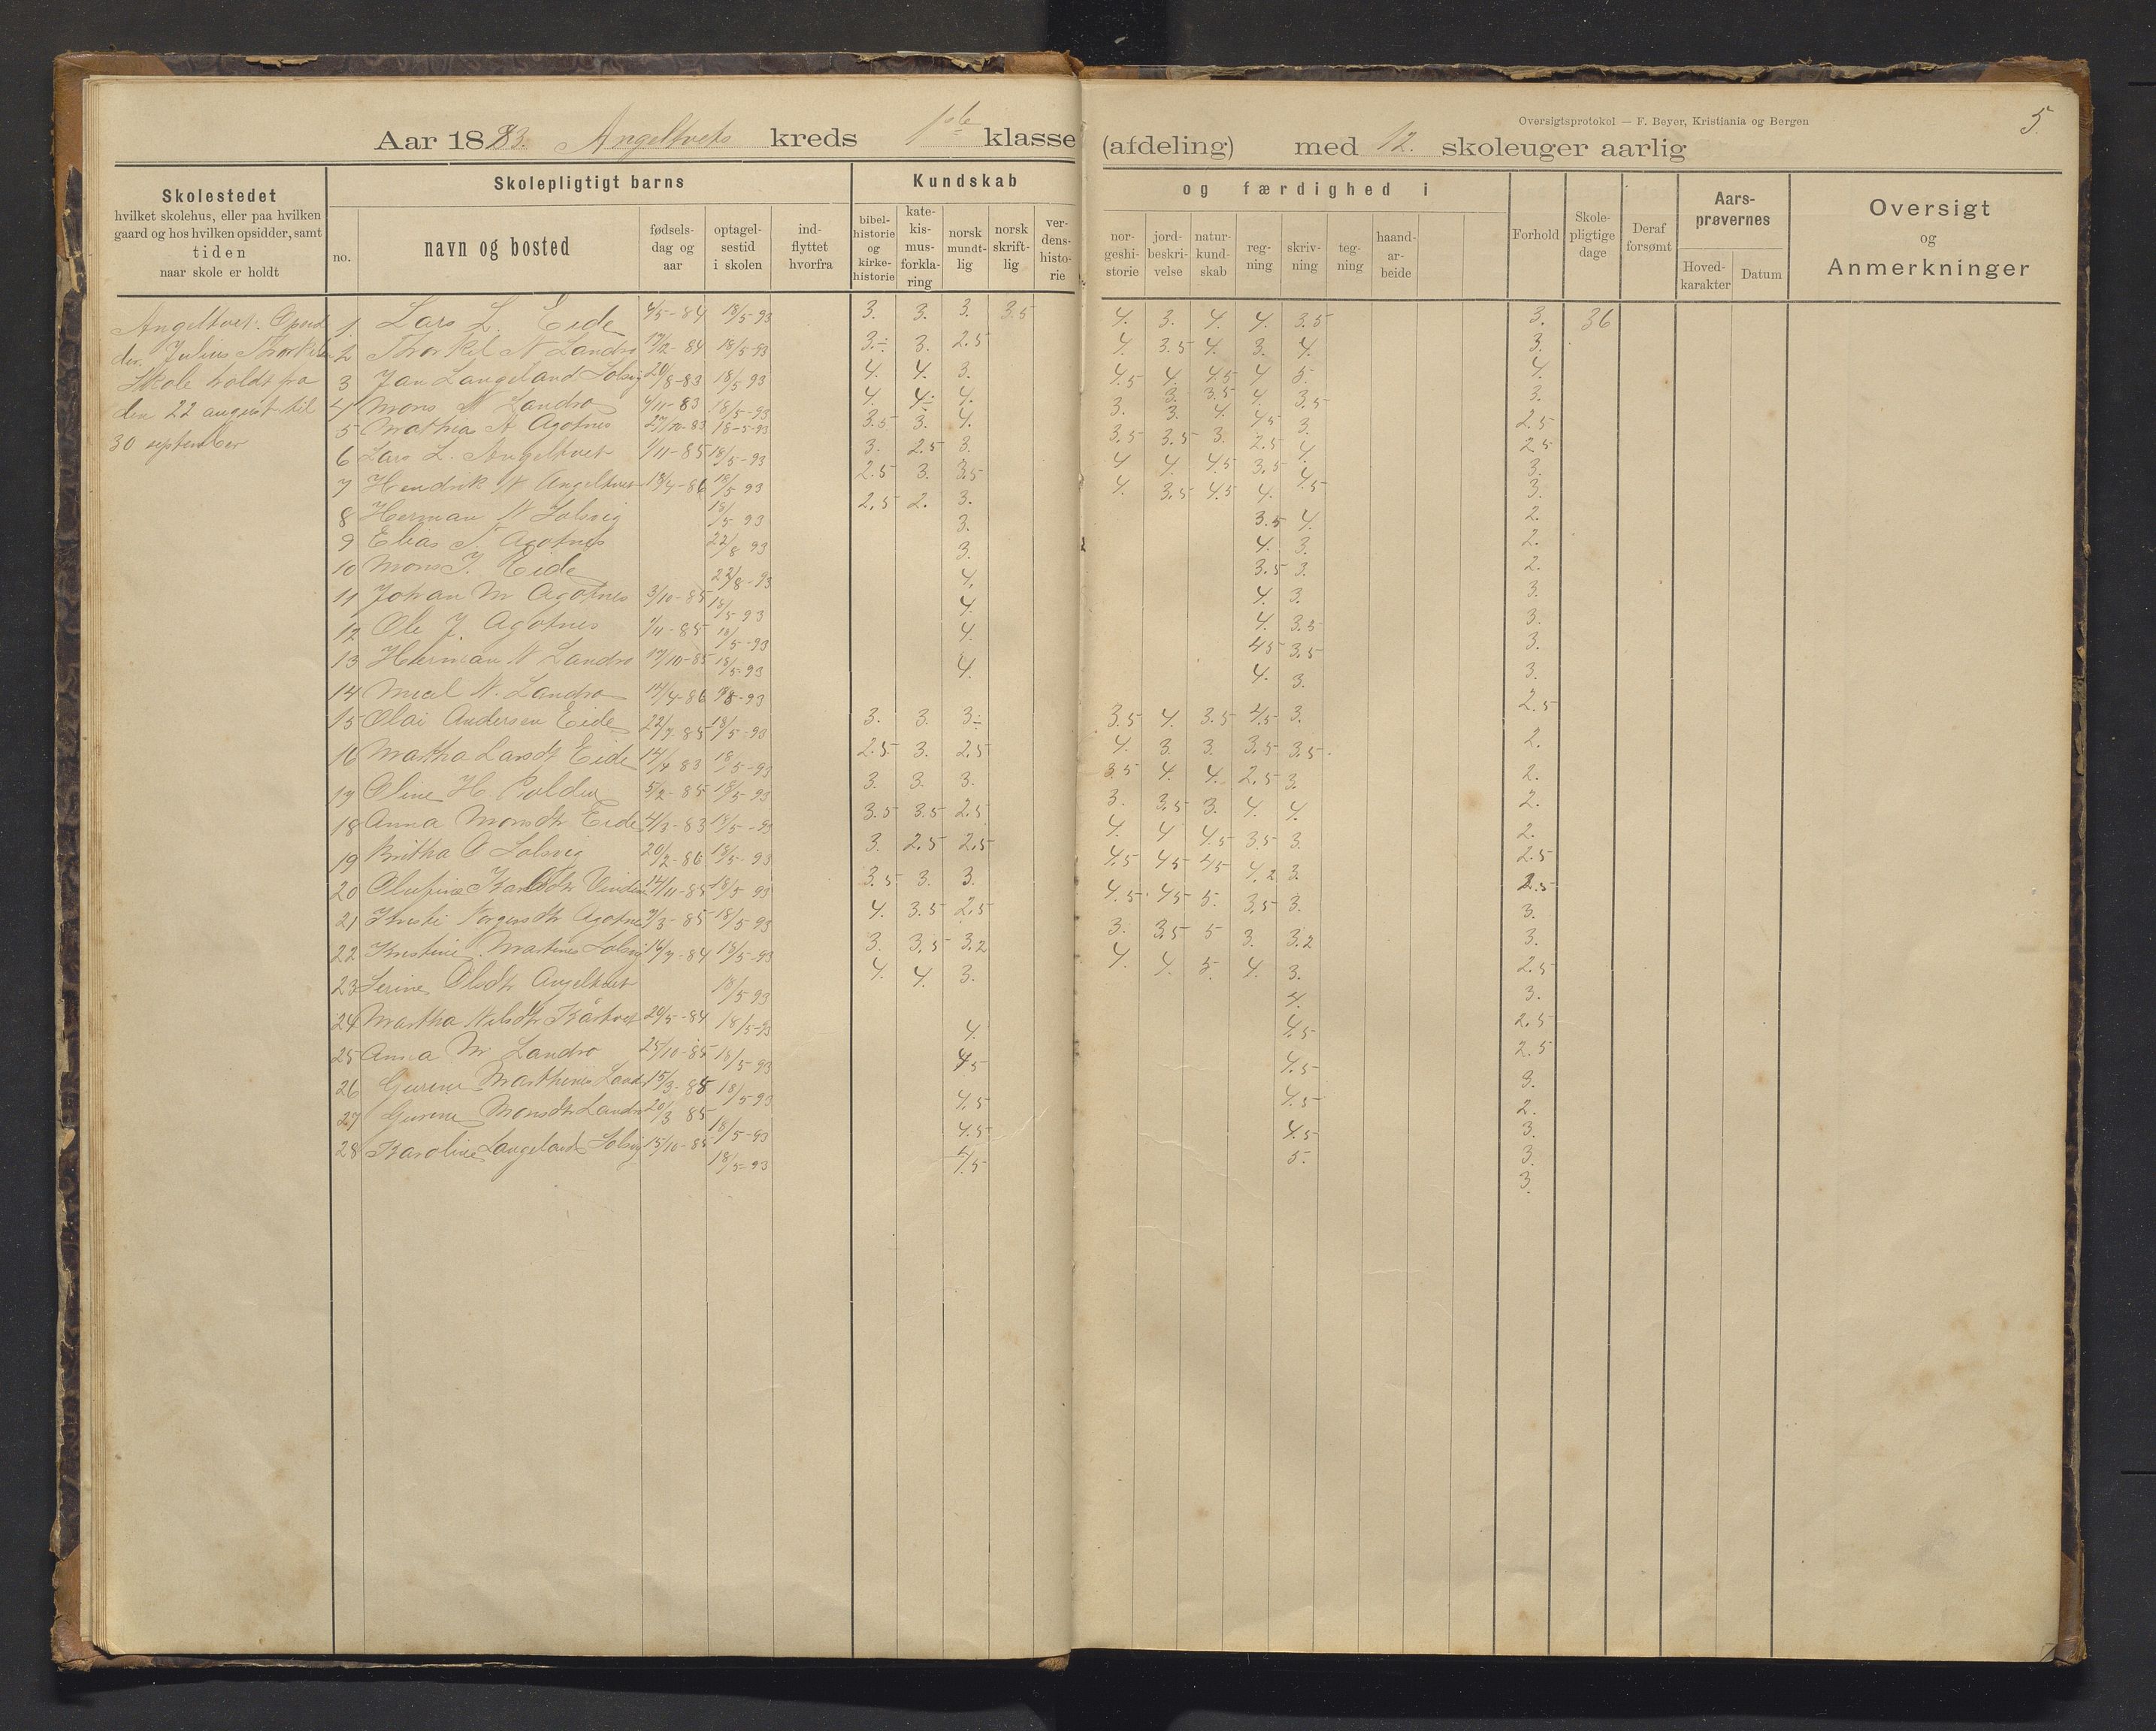 Oversigtsprotokol — F. Beyer, Kristiania og Bergen
5
Aar 1893. Angeltvets kreds 1ste klasse (afdeling) med 12. skoleuger aarlig
Skolestedet
hvilket skolehus, eller paa hvilken
gaard og hos hvilken opsidder, samt
tiden
naar skole er holdt
Skolepligtigt barns
no.
navn og bosted
fødsels-
dag og
aar
optagel-
sestid
i skolen
ind-
flyttet
hvorfra
Kundskab
bibel-
historie
og
kirke-
historie
kate-
kis-
mus-
forkla-
ring
norsk
mundt-
lig
norsk
skrift-
lig
ver-
dens-
histo-
rie
og færdighed i
nor-
geshi-
storie
jord-
beskri-
velse
natur-
kund-
skab
reg-
ning
skriv-
ning
teg-
ning
haand-
ar-
beide
Forhold
Skole-
pligtige
dage
Deraf
forsømt
Aars-
prøvernes
Hoved-
karakter
Datum
Oversigt
og
Anmerkninger
Angeltvet. Opsid
der Julius Thorkels
Skole holdt fra
den 22 august til
30 september
1 Lars L. Eide 4/5-84 18/5-93 3. 3. 3. 3.5 4. 3. 4. 4. 3.5 3. 36
2 Thorkel N Landro 17/2-84 18/5-93 3.÷ 3. 2.5 4. 3.5 4. 3. 4. 3.
3 Jan Langeland Solsvig 20/8-83 18/5 93 4. 4. 3. 4.5 4. 4.5 4 5. 4.
4 Mons N Landro 4/11-83 18/5-93 4. 4÷ 4. 3. 3. 3.5 4. 3.5 3.
5 Mathias A Agotnes 27/10-83 18-5-93 3.5 3. 4. 3.5 3. 4. 4.5 3. 2.5
6 Lars L. Angeltvet 1/11-85 18/5-93 3. 2.5 3. 4 3.5 3. 2.5 4. 2.5
7 Hendrik N Angeltvet 18/4-86 18/5 93 2.5 3. 3.5 4. 4. 4.5 3.5 4.5 3.
8 Herman N Solsvig 18/5 93 2,5 2. 3. 3.5 4.5 4. 3.
9 Elias N Agotnes 22/8 93 3. 3.5 4. 2.
10 Mons J. Eide 22/8-93 3. 4. 3. 2.
11 Johan M Agotnes 3/10-85 18/5 93 4. 3.5 3. 2.
12 Ole J. Agotnes 1/11-85 18/5-93 4. 4. 3. 3.
13 Herman N Landro 17/10-85 18/5-93 4. 4. 3.5 3.
14 Micel N. Landro 14/4-86 18/5-93 4. 4.5 3.5 3.
15 Olai Andersen Eide 22/7-85 18/5-93 3. 3. 3÷ 3.5 4. 3.5 4.5 3. 2.5
16 Martha Larsdt Eide 14/4 83 18/5-93 2.5 3. 2.5 4. 3. 3. 3.5 3.5 2.
17 Oline H. 5/2-85 18/5-93 3. 3. 3. 3.5 4. 4. 2.5 3. 2.
18 Anna Monsdtr Eide 4/3-83 18/5-93 3.5 3.5 2.5 3. 3.5 3. 4. 4. 2.
19 Britha O Solsvig 20/2-86 18/5-93 3. 2.5 2.5 4. 4 4.5 3.5 3. 2.
20 14/11-85 18/5 93 3.5 3. 3. 4.5 4.5 4.5 4.2 3. 2.5
21 Kristi Agotnes 9/3-85 18/5 93 4. 3.5 2.5 4.5 4.5 5. 3.5 3. 2.5
22 Kristine Martines Solsvig 16/7-84 18/5-93 3. 3.5 3.2 3. 3.5 5 3. 3.2 3.
23 Serine Olsdtr Angeltvet 18/5 93 4. 4. 3. 4. 4. 5. 4. 3. 3.
24 Martha Nilsdtr Kårtvet 29/5-84 18/5-93 4. 4. 2.5
25 Anna M Landro 25/10-85 18/5-93 4.5 4.5 3.
26 Gurine Marthines Landro 15/3-85 18/5 93 4.5 4.5 2.5
27 Gurine Monsdtr Landro 20/3 85 18/5-93 4.5 4.5 2.5
28 Karoline Langeland Solsvig 15/10-85 18/5-93 4.5 5. 3.